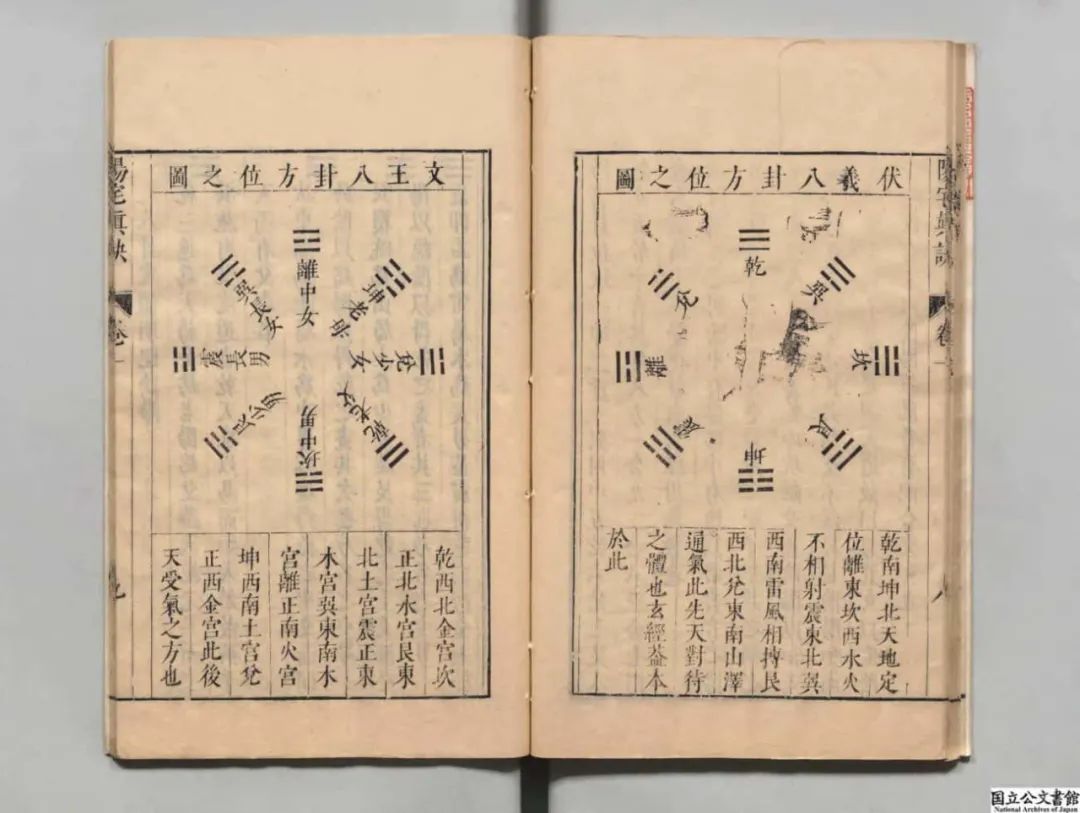 陽宅眞訣
卷一
八
伏羲八卦方位之圖
乾
巽
坎
艮
坤
震
離
兌
乾南坤北天地定
位離東坎西水火
不相射震東北巽
西南雷風相摶艮
西北兌東南山澤
通氣此先天對待
之體也玄經葢本
於此
文王八卦方位之圖
離中女
坤老母
兌少女
乾老父
坎中男
艮少男
震長男
巽長女
乾西北金宮坎
正北水宮艮東
北土宮震正東
木宮巽東南木
宮離正南火宮
坤西南土宮兌
正西金宮此後
天受氣之方也
陽宅眞訣
卷一
九
国立公文書館
National Archives of Japan